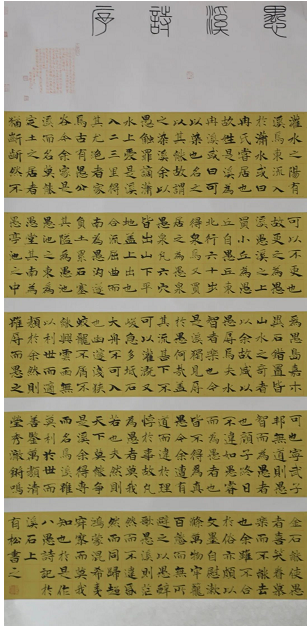 愚溪詩序
灌水之陽有
溪焉東流入
於瀟水或曰
冉氏嘗居也
故姓是溪為
冉溪或曰可
以染也名之
以其能故謂
之染溪余以
愚觸罪謫瀟
水上愛是溪
入二三里得
其尤絕者家
焉古有愚公
谷今余家是
溪而名莫能
定土之居者
猶齗齗然不
可以不更也
故更之為愚
溪愚溪之上
買小丘為愚
丘自愚丘東
北行六十步
得泉焉又買
居之為愚泉
愚泉凡六穴
皆出山下平
地蓋上出也
合流屈曲而
南為愚溝遂
負土累石塞
其隘為愚池
愚池之東為
愚堂其南為
愚亭池之中
為愚島嘉木
異石錯置皆
山水之奇者
以余故咸以
愚辱焉夫水
智者樂也今
是溪獨見辱
於愚何哉蓋
其流甚下不
可以灌溉又
峻急多坻石
大舟不可入
也幽邃淺狹
蛟龍不屑不
能興雲雨無
以利世而適
類於余然則
雖辱而愚之
可也甯武子
邦無道則愚
智而為愚者
也顏子終日
不違如愚睿
而為愚者也
皆不得為真
愚今余遭有
道而違於理
悖於事故凡
為愚者莫我
若也夫然則
天下莫能爭
是溪余得專
而名焉溪雖
莫利於世而
善鑒萬類清
瑩秀澈鏘鳴
金石能使愚
者喜笑眷慕
樂而不能去
也余雖不合
於俗亦頗以
文墨自慰漱
滌萬物牢籠
百態而無所
避之以愚辭
歌愚溪則茫
然而不違昏
然而同歸超
鴻蒙混希夷
寂寥而莫我
知也於是作
八愚詩記於
溪石上
有松書之